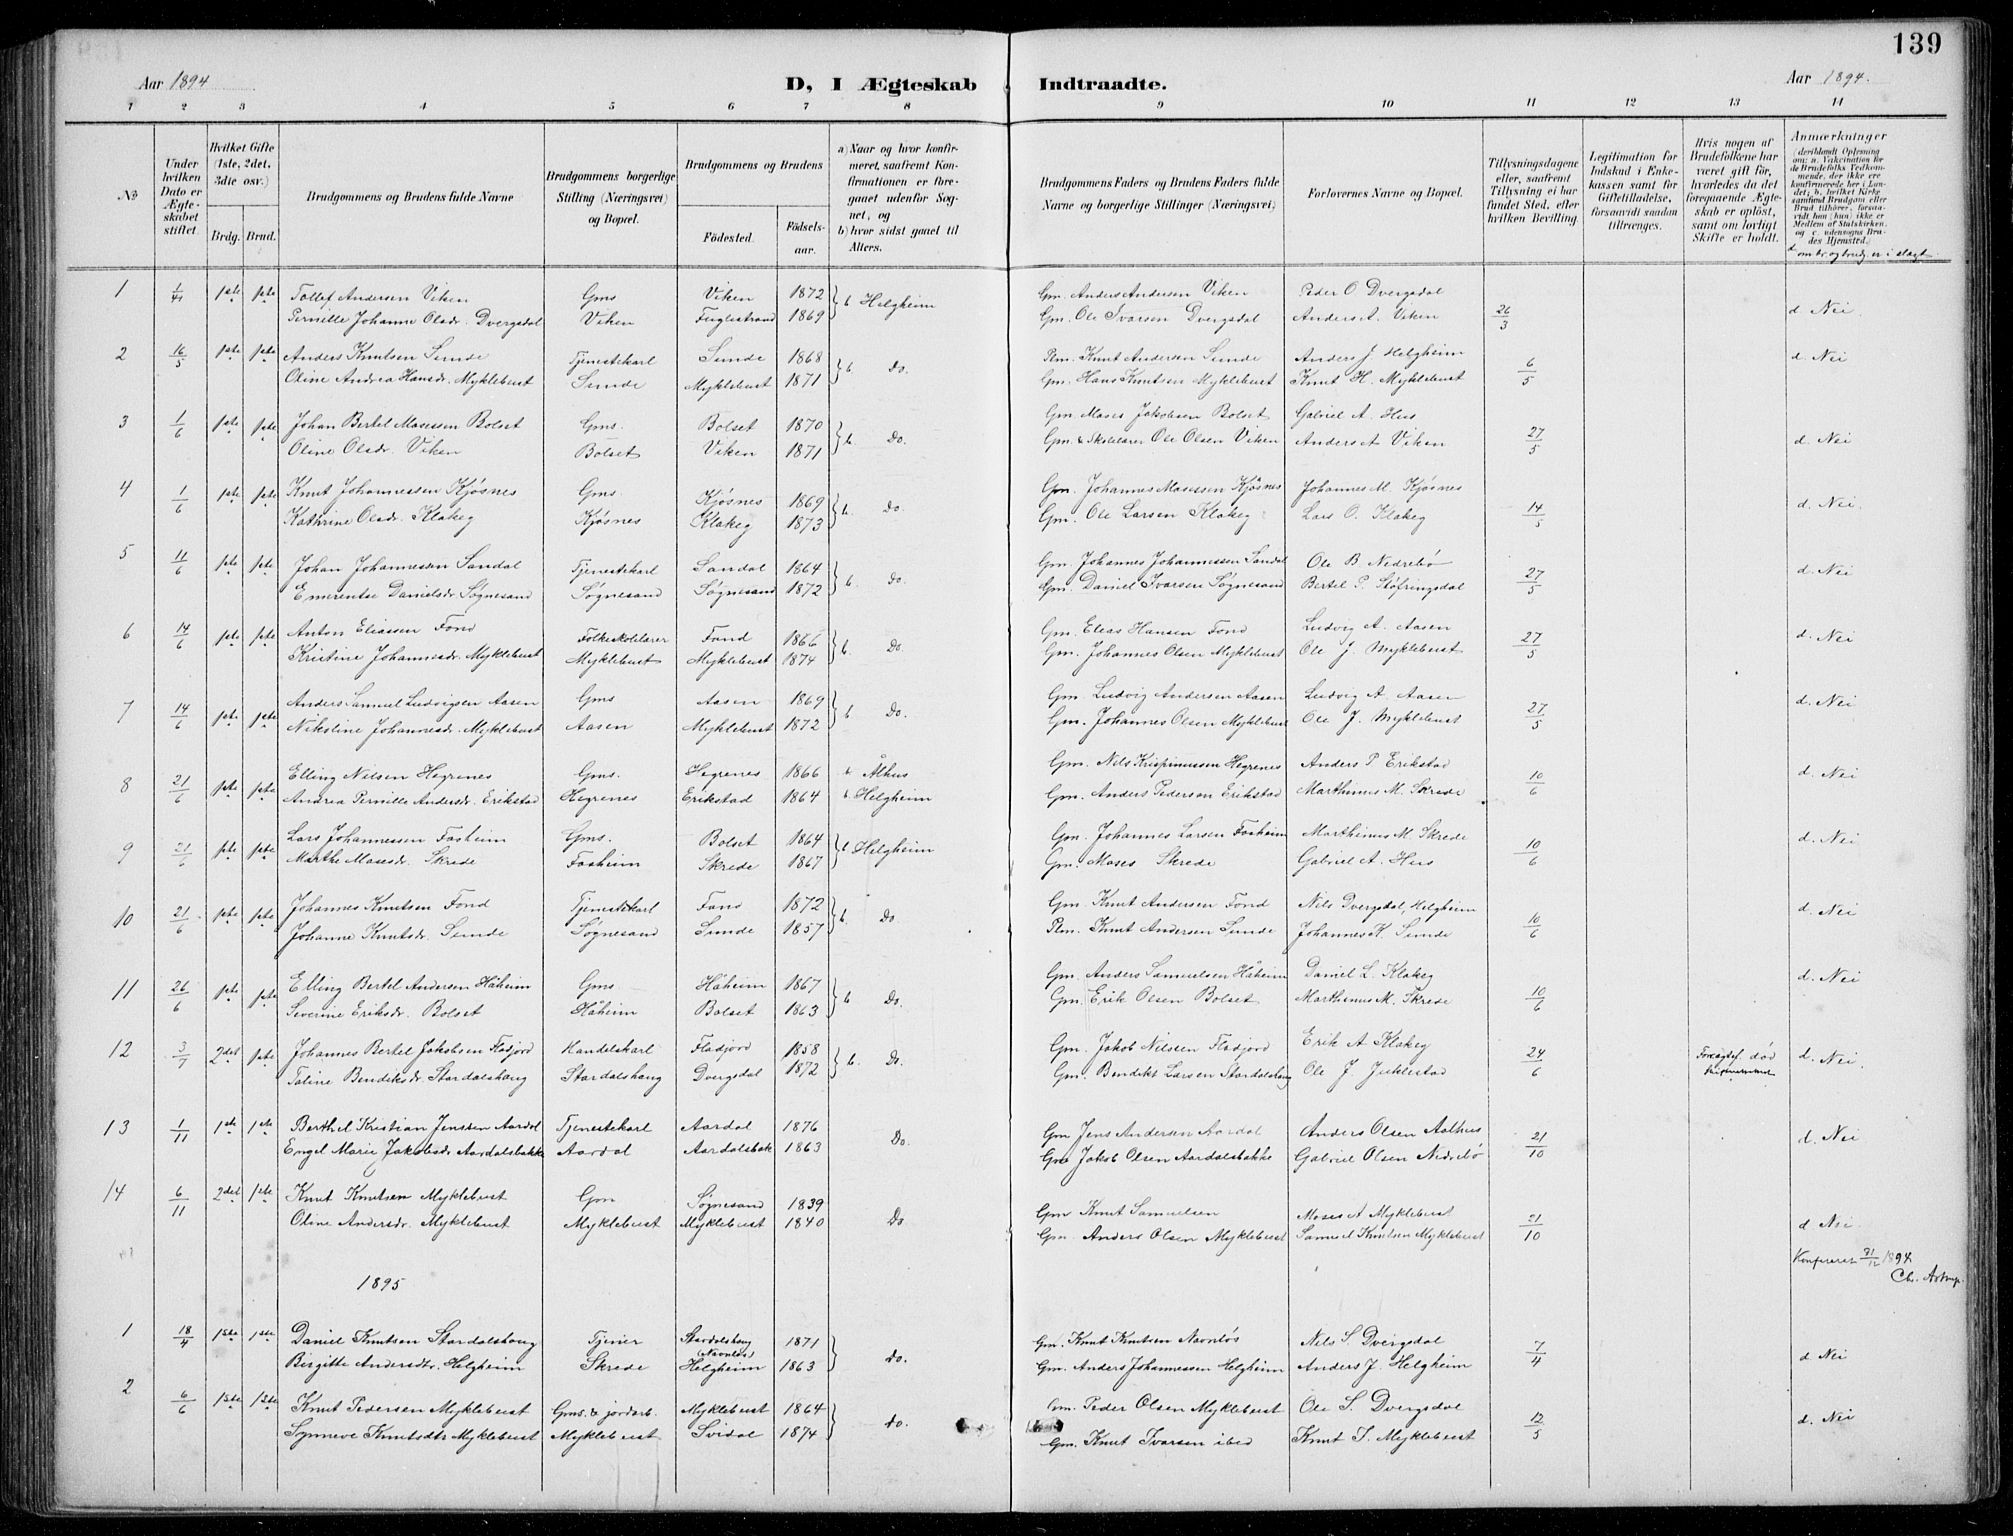 139
Aar 1894
D, I Ægteskab Indtraadte.
Aar 1894.
1 2 3 4 5 6 7 8 9 10 11 12 13 14
№
Under hvilken Dato er Ægteskabet stiftet.
Hvilket Gifte (1ste, 2det, 3die osv.)
Brdg. Brud.
Brudgommens og Brudens fulde Navne
Brudgommens borgerlige Stilling (Næringsvei) og Bopæl.
Brudgommens og Brudens
Fødested. Fødselsaar.
a) Naar og hvor konfirmeret, saafremt Konfirmationen er foregaaet udenfor Sognet, og
b) hvor sidst gaaet til Alters.
Brudgommens Faders og Brudens Faders fulde Navne og borgerlige Stillinger (Næringsvei)
Forlovernes Navne og Bopæl.
Tillysningsdagene eller, saafremt Tillysning ei har fundet Sted, efter hvilken Bevilling.
Legitimation for Indskud i Enkekassen samt for Giftetilladelse, forsaavidt saadan tiltrænges.
Hvis nogen af Brudefolkene har været gift, hvorledes da det foregaaende Ægteskab er opløst, samt om lovligt Skifte er holdt.
Anmærkninger (deriblandt Oplysning om: a. Vakcination for de Brudefolks Vedkommende, der ikke ere konfirmerede her i Landet; b. hvilket Kirkesamfund Brudgom eller Brud tilhører, forsaavidt han (hun) ikke er Medlem af Statskirken, og c. udensogns Brudes Hjemsted.)
d om br. og brud. er i slægt
1 1/4 1ste 1ste Tollef Andersen Viken Gms Viken 1872 b Helgheim Gm. Anders Andersen Viken Peder O. Dvergsdal 26/3 d Nei.
Pernille Johanne Olsdr. Dvergsdal Viken Fuglestrand 1869 Gm. Ole Ivarsen Dvergsdal Anders A. Viken
2 16/5 1ste 1ste Anders Knutsen Sunde Tjenestekarl Sunde 1868 b. Do. Plm. Knut Andersen Sunde Anders J. Helgheim 6/5 d. Nei
Oline Andrea Hansdr. Myklebust Sunde Myklebust 1871 Gm. Hans Knutsen Myklebust Knut H. Myklebust
3 1/6 1ste 1ste Johan Bertel Mosessen Bolset Gms. Bolset 1870 b. Do. Gm. Moses Jakobsen Bolset Gabriel A. Hus 27/5 d. Nei
Oline Olsdr. Viken Bolset Viken 1871 Gm. & Skolelærer Ole Olsen Viken Anders A Viken
4 1/6 1ste 1ste Knut Johannessen Kjøsnes Gms. Kjøsnes 1869 b. Do Gm. Johannes Mosessen Kjøsnes Johannes M. Kjøsnes 14/5 d. Nei
Kathrine Olsdr. Klakeg Kjøsnes Klakeg 1873 Gm. Ole Larsen Klakeg Lars O. Klakeg
5 11/6 1ste 1ste Johan Johannessen Sandal Tjenestekarl Sandal 1864 b. Do. Gm. Johannes Johannessen Sandal Ole B. Nedrebø 27/5 d. Nei
Emerentse Danielsdr. Søgnesand Søgnesand Søgnesand 1872 Gm. Daniel Ivarsen Søgnesand Bertel P. Støfringsdal
6 14/6 1ste 1ste Anton Eliassen Fond Folkeskolelærer Fond 1866 b. Do Gm. Elias Hansen Fond Ludvig A. Aasen 27/5 d. Nei
Kristine Johannesdr. Myklebust Myklebust Myklebust 1874 Gm. Johannes Olsen Myklebust Ole J. Myklebust
7 14/6 1ste 1ste Anders Samuel Ludvigsen Aasen Gms Aasen 1869 b Do. Gm. Ludvig Andersen Aasen Ludvig A. Aasen 27/5 d. Nei
Nikoline Johannesdr. Myklebust Aasen Myklebust 1872 Gm. Johannes Olsen Myklebust Ole J. Myklebust
8 21/6 1ste 1ste Elling Nilsen Hegrenes Gms. Hegrenes 1866 b Ålhus Gm. Nils Krispinussen Hegrenes Anders P. Erikstad 10/6 d. Nei
Andrea Pernille Andersdr. Erikstad Hegrenes Erikstad 1864 b. Helgheim Gm. Anders Pedersen Erikstad Marthinus M. Skrede
9 21/6 1ste 1ste Lars Johannessen Fosheim Gms. Bolset 1864 b Helgheim Gm. Johannes Larsen Fosheim Marthinus M. Skrede 10/6 d. Nei
Marthe Mosesdr. Skrede Fosheim Skrede 1867 Gm. Moses Skrede Gabriel A. Hus
10 21/6 1ste 1ste Johannes Knutsen Fond Tjenestekarl Fond 1872 b. Do Gm. Knut Andersen Fond Nils Dvergsdal, Helgheim 10/6 d. Nei
Johanne Knutsdr. Sunde Søgnesand Sunde 1857 Plm. Knut Andersen Sunde Johannes K. Sunde
11 26/6 1ste 1ste Elling Bertel Andersen Håheim Gms Håheim 1867 b Do. Gm. Anders Samuelsen Håheim Daniel L. Klakeg 10/6 d. Nei
Severine Eriksdr. Bolset Håheim Bolset 1863 Gm. Erik Olsen Bolset Marthinus M. Skrede
12 3/7 2det 1ste Johannes Bertel Jakobsen Fladjord Handelskarl Fladjord 1858 b. Do. Gm. Jakob Nilssen Fladjord Erik A Klakeg 24/6 død d. Nei.
Taline Bendiksdr. Stardalshaug Stardalshaug Dvergsdal 1872 Gm. Bendikt Larsen Stardalshaug Ole J. Juklestad
13 1/11 1ste 1ste Berthel Kristian Jenssen Aardal Tjenestekarl Aardal 1876 Do. Gm Jens Andersen Aardal Anders Olsen Aalhus 21/10 d. Nei
Engel Marie Jakobsdr Aardalsbakke Aardal Aardalsbak 1863 Gm Jakob Olsen Aardalsbakke Gabriel Olsen Nedrebø
14 6/11 2det 1ste Knut Knutsen Myklebust Gm Søgnesand 1839 Do. Gm Knut Samuelsen Moses A Myklebust 21/10 d Nei.
Oline Andersdr. Myklebust Myklebust Myklebust 1840 Gm. Anders Olsen Myklebust Samuel Knutsen Myklebust
Konfereret 31/12 1894
Ch. Astrup.
1895
1 18/4 1ste 1ste Daniel Knutsen Stardalshaug Tjener Stardalshaug (Navnløs) 1871 Do. Gm. Knut Knutsen Navnløs Nils S. Dvergsdal 7/4 d Nei
Birgitte Andersdtr. Helgheim Skrede Helgheim 1863 Gm. Anders Johannessen Helgheim Anders J. Helgheim
2 6/6 1ste 1ste Knut Pedersen Myklebust Gms. & jordarb. Myklebust 1864 Do. Gm. Peder Olsen Myklebust Ole S. Dvergsdal 12/5 d. Nei
Synneve Knutsdtr Myklebust Myklebust Svidal 1874 Gm. Knut Ivarsen ibid Knut I. Myklebust